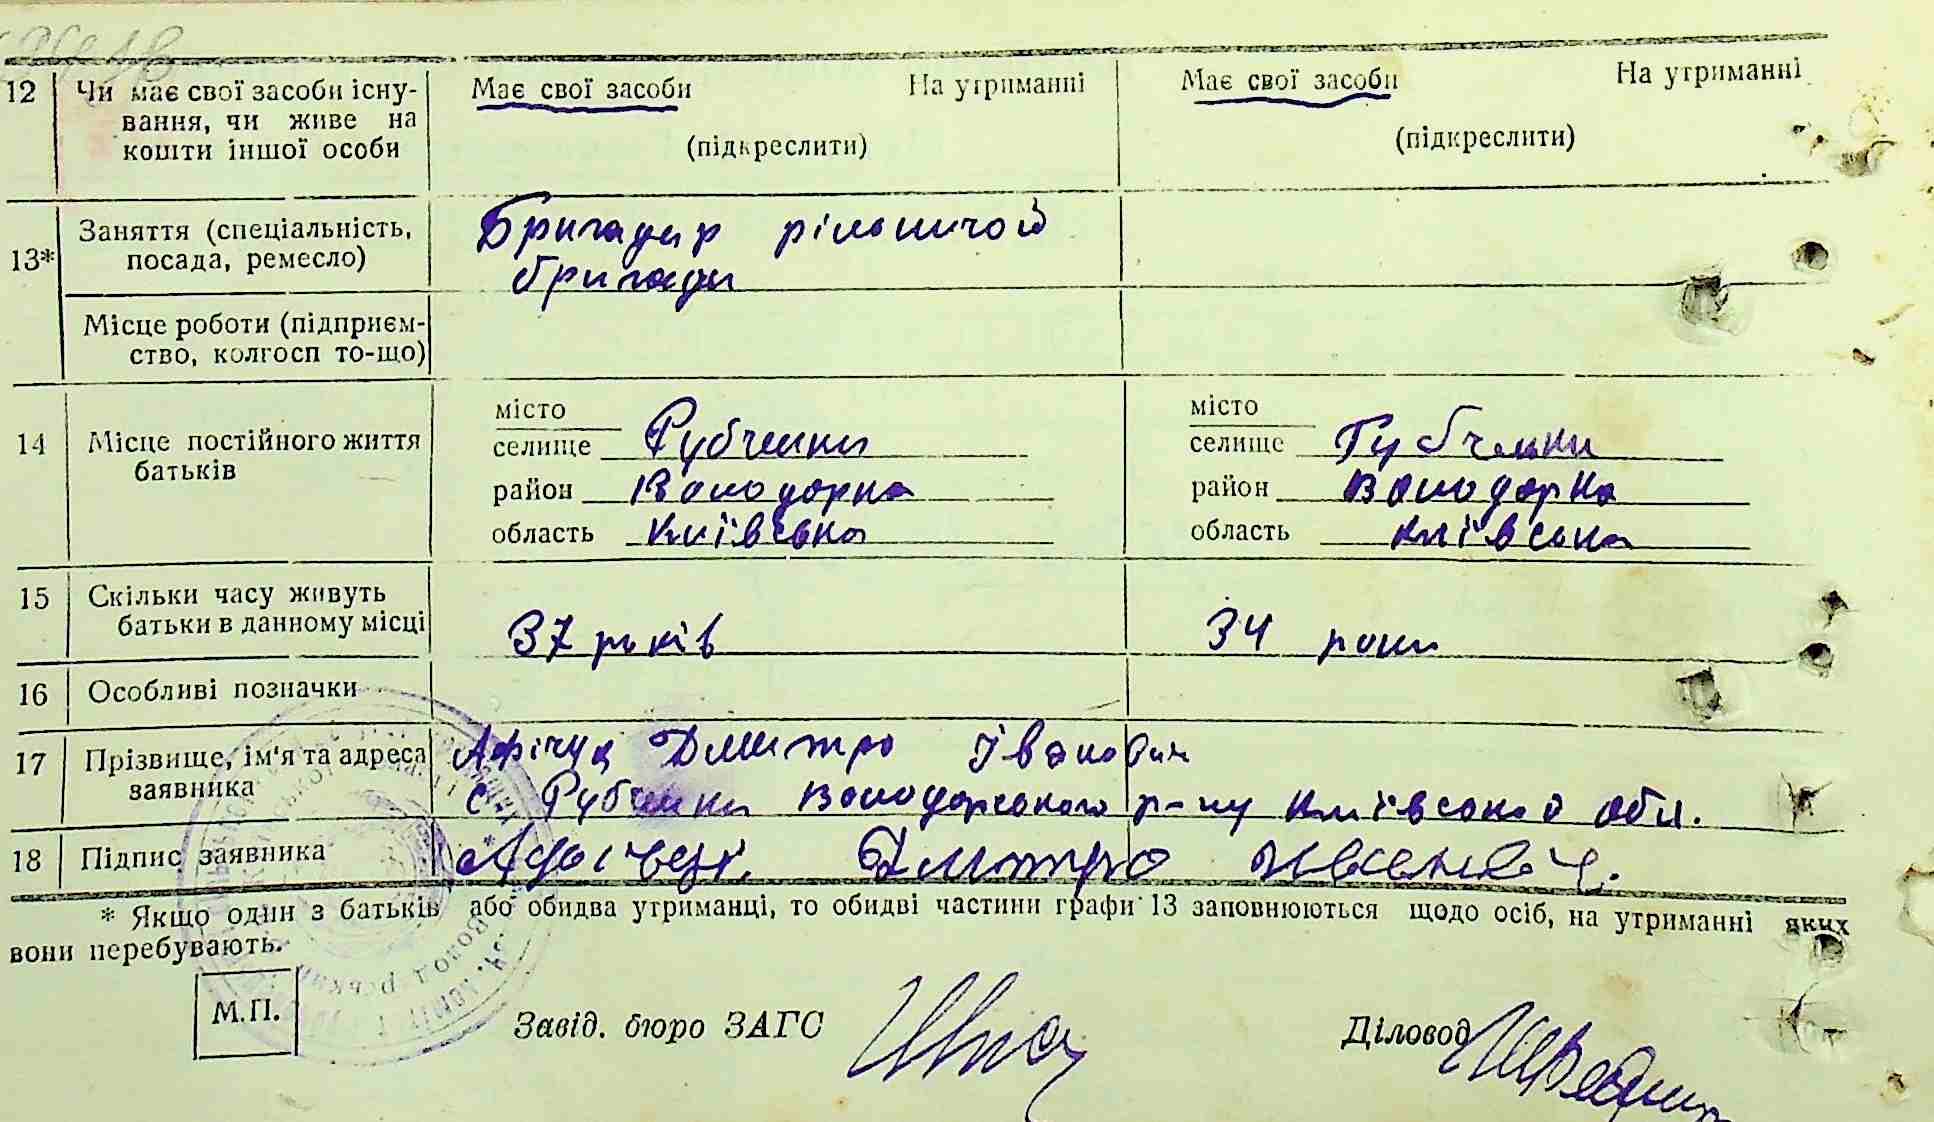 12 Чи має свої засоби існу- Має свої засоби На утриманні Має свої засоби На утриманні
вання, чи живе на
кошти іншої особи (підкреслити) (підкреслити)
13* Заняття (спеціальність, Бригадир рільничой
посада, ремесло) бригади
Місце роботи (підприєм-
ство, колгосп то-що)
14 Місце постійного життя
батьків
місто місто
селище Рубченки селище Рубченки
район Володарка район Володарка
область Київська область Київська
15 Скільки часу живуть
батьки в данному місці 37 років 34 роки
16 Особливі позначки
17 Прізвище, ім'я та адреса Дмитро Іванович
заявника с Рубченки Володарського р-ну Київської обл.
18 Підпис заявника Дмитро
* Якщо один з батьків або обидва утриманці, то обидві частини графи 13 заповнюються щодо осіб, на утриманні яких
вони перебувають.
М.П. Завід. бюро ЗАГС Діловод